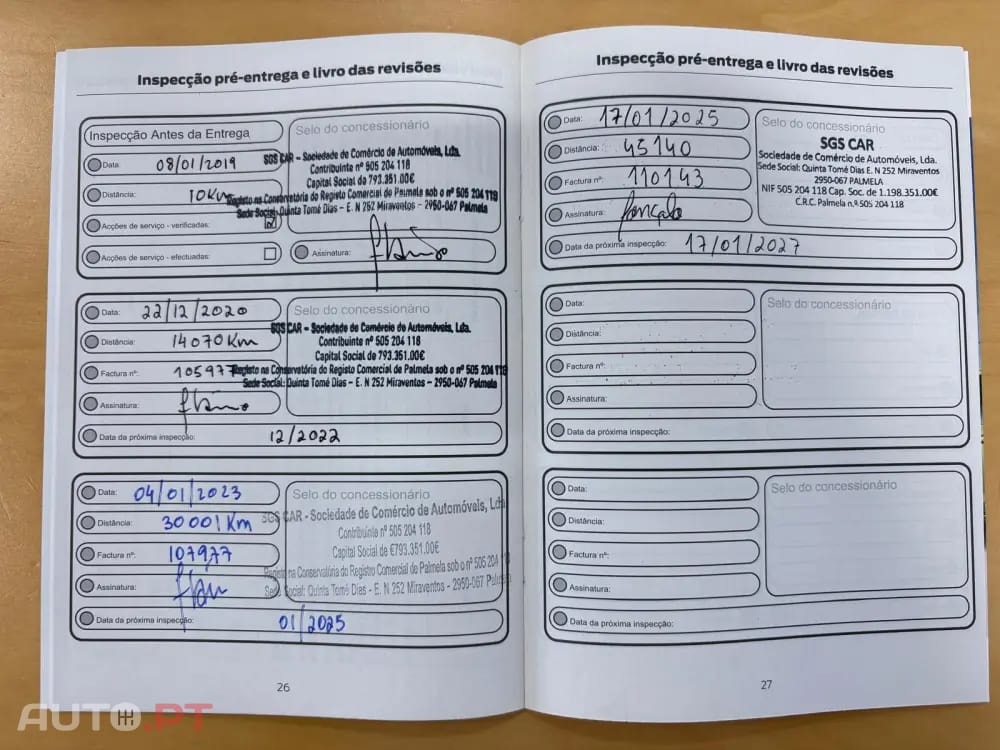 Inspecção pré-entrega e livro das revisões
Inspecção Antes da Entrega
Data: 08/01/2019
Distância: 10Km
Acções de serviço - verificadas:
Acções de serviço - efectuadas:
Selo do concessionário
SGS CAR – Sociedade de Comércio de Automóveis, Lda.
Contribuinte nº 505 204 118
Capital Social de 793.351.00€
Registo na Conservatória do Registo Comercial de Palmela sob o nº 505 204 118
Sede Social: Quinta Tomé Dias – E. N 252 Miraventos – 2950-067 Palmela
Assinatura:
Data: 22/12/2020
Distância: 14070Km
Factura nº: 105977
Assinatura:
Data da próxima inspecção: 12/2022
Selo do concessionário
SGS CAR – Sociedade de Comércio de Automóveis, Lda.
Contribuinte nº 505 204 118
Capital Social de 793.351.00€
Registo na Conservatória do Registo Comercial de Palmela sob o nº 505 204 118
Sede Social: Quinta Tomé Dias – E. N 252 Miraventos – 2950-067 Palmela
Data: 04/01/2023
Distância: 30001Km
Factura nº: 107977
Assinatura:
Data da próxima inspecção: 01/2025
Selo do concessionário
SGS CAR - Sociedade de Comércio de Automóveis, Lda
Contribuinte nº 505 204 118
Capital Social de €793.351.00€
Registo na Conservatória do Registo Comercial de Palmela sob o nº 505 204
Sede Social: Quinta Tomé Dias - E. N 252 Miraventos - 2950-067 Palmela
26
Inspecção pré-entrega e livro das revisões
Data: 17/01/2025
Distância: 45140
Factura nº: 110143
Assinatura: Gonçalo
Data da próxima inspecção: 17/01/2027
Selo do concessionário
SGS CAR
Sociedade de Comércio de Automóveis, Lda.
Sede Social: Quinta Tomé Dias E. N 252 Miraventos
2950-067 PALMELA
NIF 505 204 118 Cap. Soc. de 1.198.351.00€
C.R.C. Palmela n.º 505 204 118
Data:
Distância:
Factura nº:
Assinatura:
Data da próxima inspecção:
Selo do concessionário
Data:
Distância:
Factura nº:
Assinatura:
Data da próxima inspecção:
Selo do concessionário
27
AUTO.PT